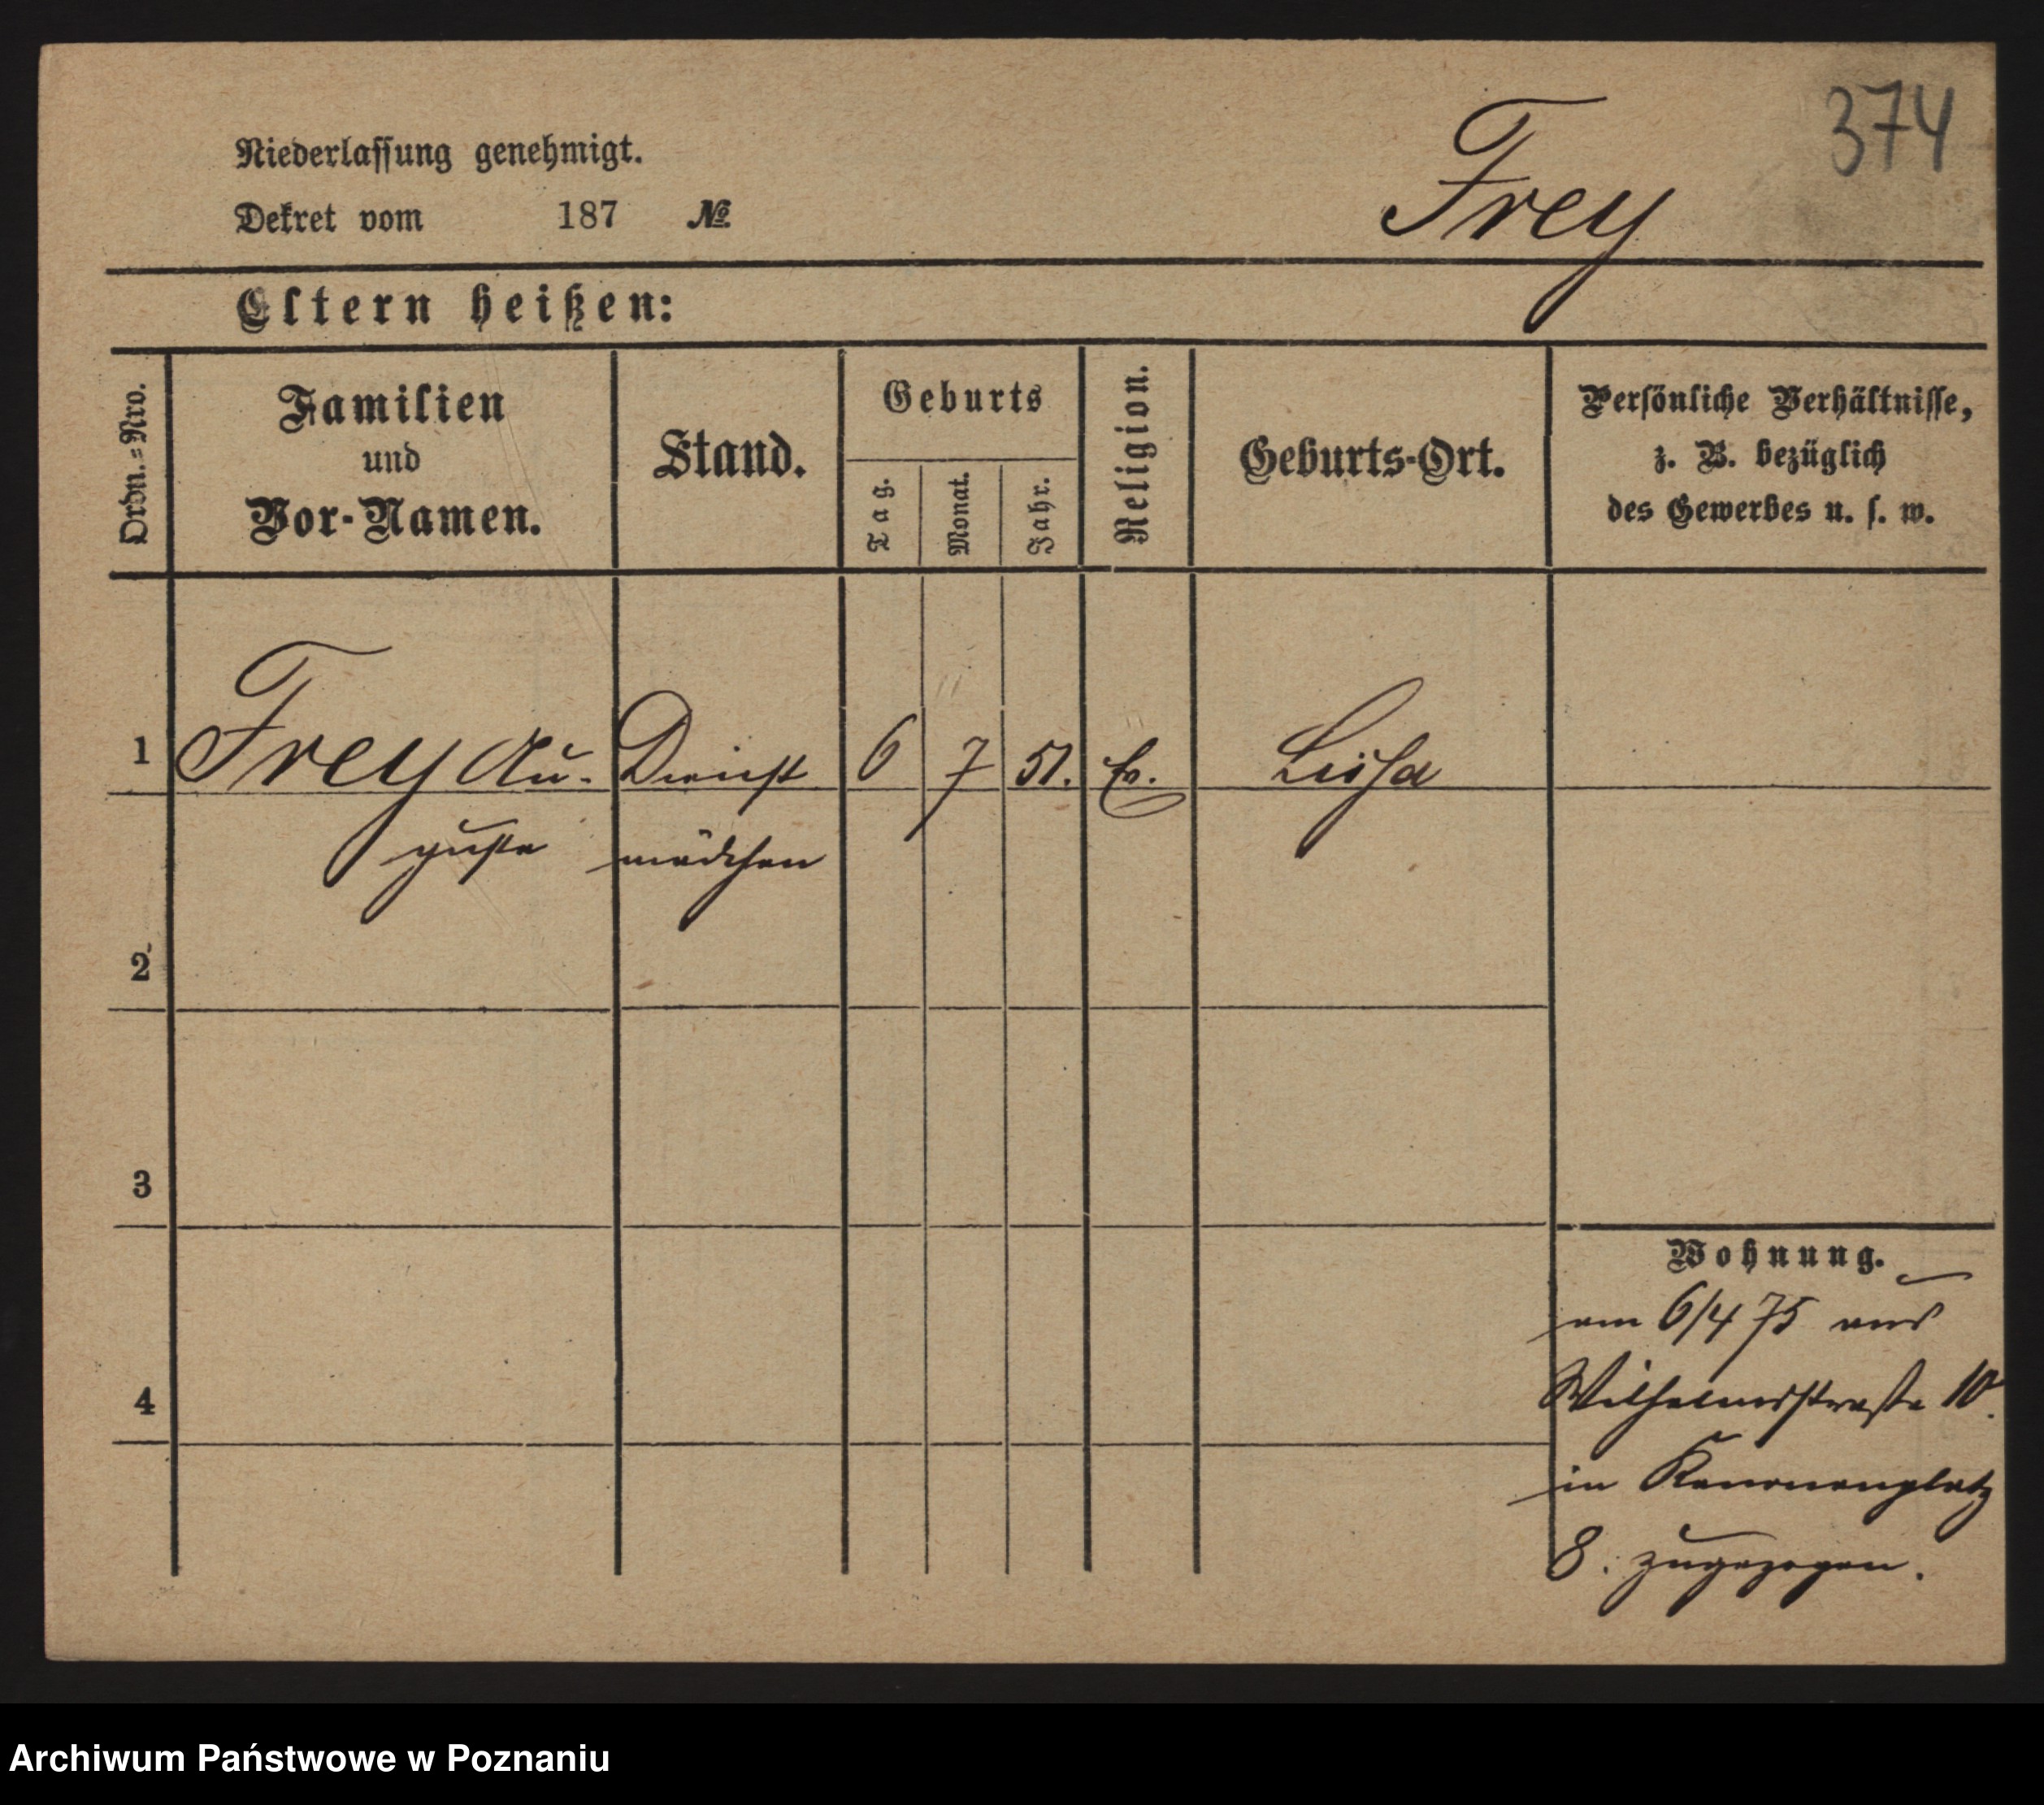 374
Niederlassung genehmigt.
Dekret vom 187 №
Frey
Eltern heißen:
Ordn.=Nro.
Familien
und
Vor-Namen.
Stand.
Geburts
Tag.
Monat.
Jahr.
Religion.
Geburts-Ort.
Persönliche Verhältnisse,
z. B. bezüglich
des Gewerbes u. s. w.
1 Frey Au- Dienst 6 7 51. Ev.
guste mädchen
2
3
4
Wohnung.
am 6/4 75 aus
Wilhelmsstraße 10.
in Kanonenplatz
8. zugezogen.
Archiwum Państwowe w Poznaniu